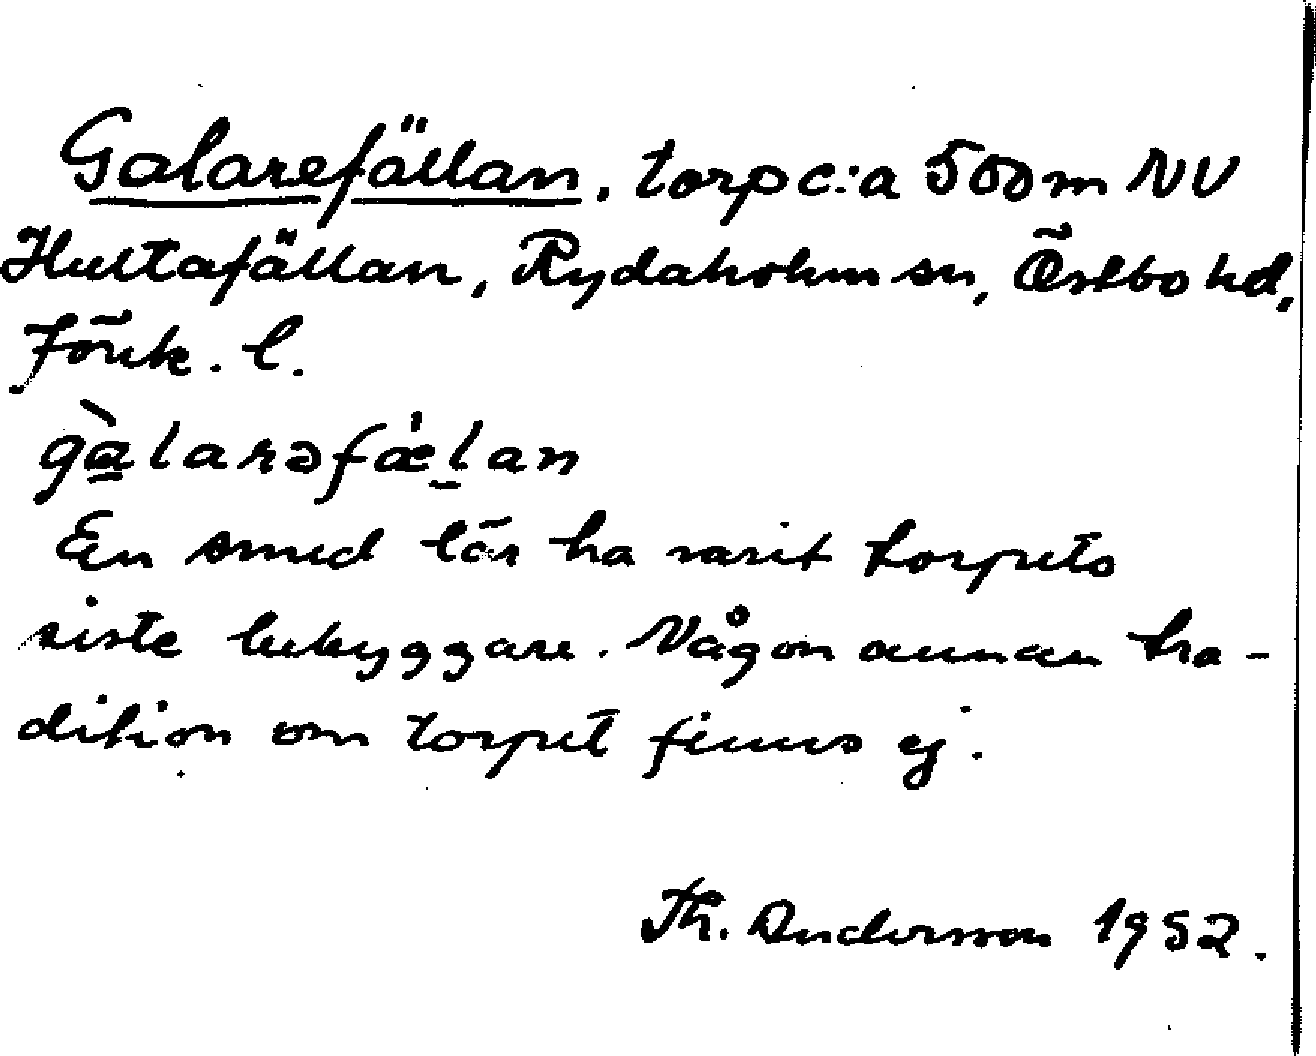 Galarefällan, torp c:a 500 m NV
Hultafällan, Rydaholm sn, Östbo hd,
Jönk. l.
gàlarəfælan
En smed lär ha varit torpets
siste bebyggare. Någon annan tra-
dition om torpet finns ej.
Th. Andersson 1952.